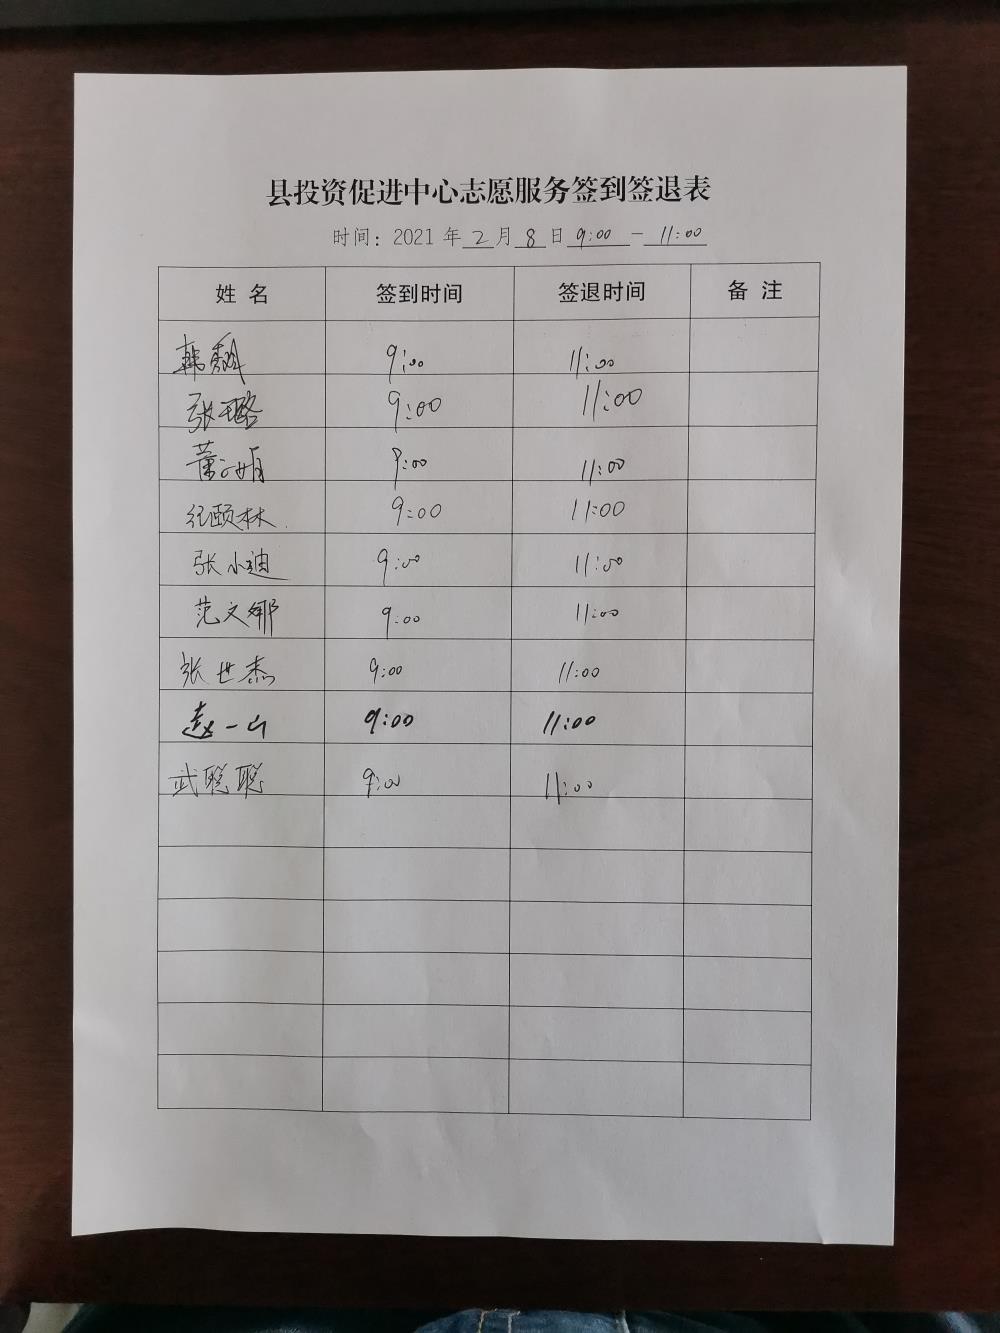 县投资促进中心志愿服务签到签退表
时间：2021 年 2 月 8 日 9:00 － 11:00
姓 名 签到时间 签退时间 备 注
韩 9:00 11:00
张璐 9:00 11:00
董 娟 9:00 11:00
颐林 9:00 11:00
张小迪 9:00 11:00
范文娜 9:00 11:00
张世杰 9:00 11:00
赵一山 9:00 11:00
武聪聪 9:00 11:00